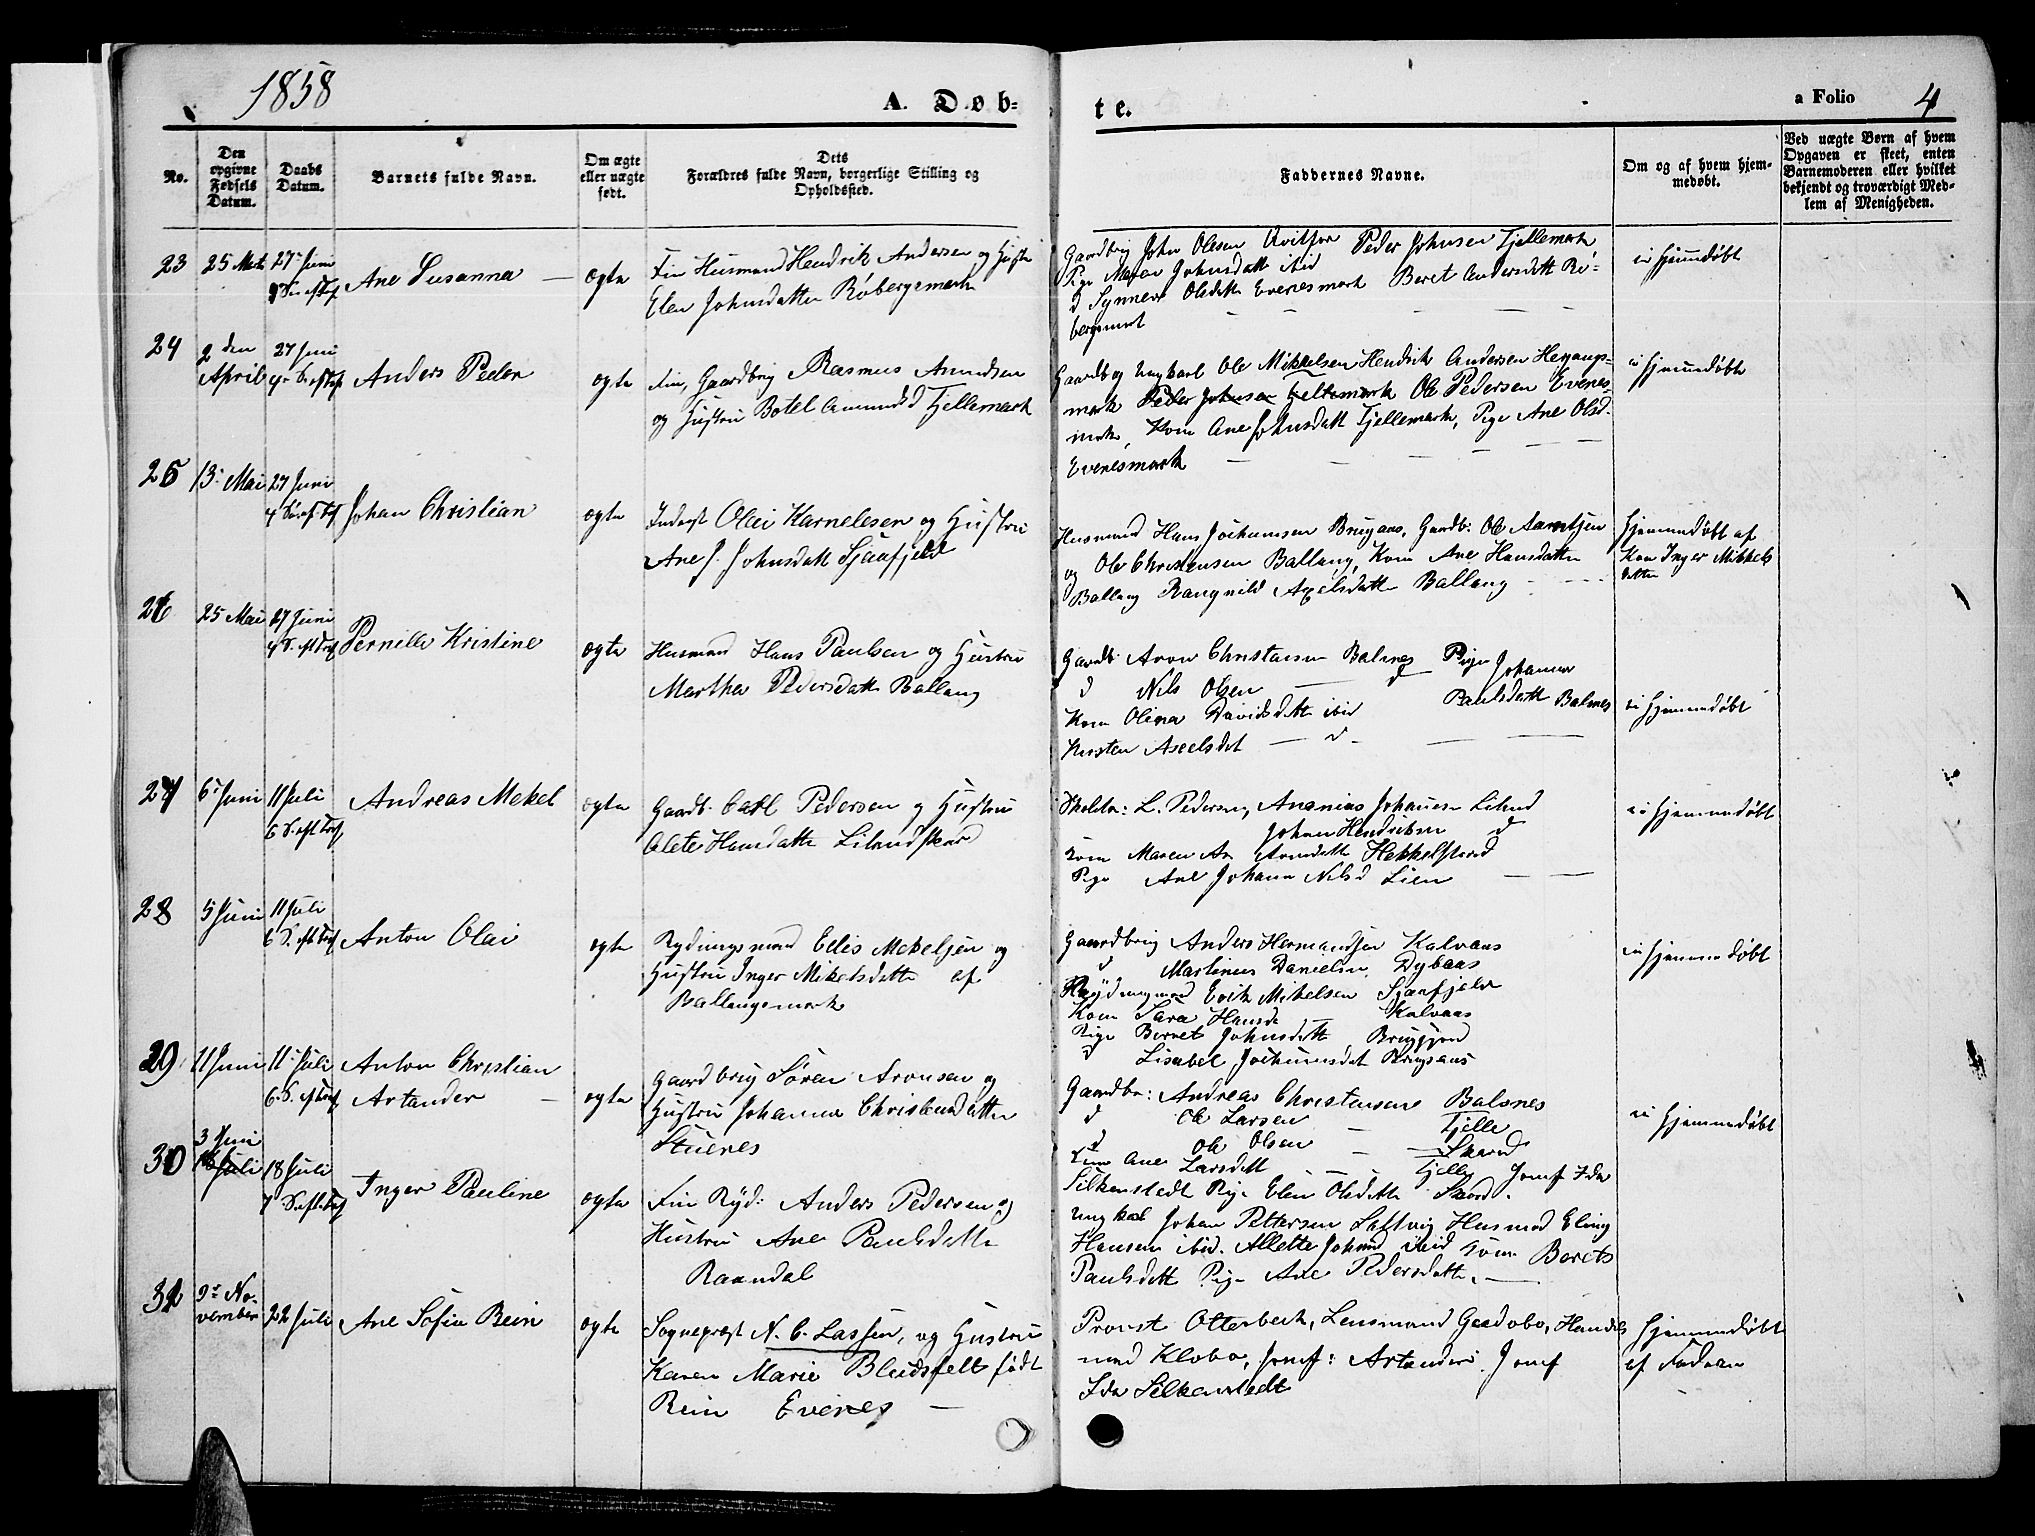 1858
A. Døb-
te.
a Folio 4
No.
Den
opgivne
Fødsels
Datum.
Daabs
Datum.
Barnets fulde Navn.
Om ægte
eller uægte
født.
Dets
Forældres fulde Navn, borgerlige Stilling og
Opholdssted.
Faddernes Navne.
Om og af hvem hjem-
medøbt.
Ved uægte Børn af hvem
Opgaven er skeet, enten
Barnemoderen eller hvilket
bekjendt og troværdigt Med-
lem af Menigheden.
23
27 Juni
Ane Susanna
ægte
Fin Husmand Hendrik Andersen og Hustru
Elen Johnsdatter Røbergsmark
Gaardbrug John Olesen Kvitfor Peder Johnsen Tjellemark
Pige Maren Johnsdatt ibid
d Synneve Olsdatt Evenesmark Beret Andersdatt Rø-
bergsmark
ei hjemmedøbt
24
2den
April
27 Juni
4 S. eft Tref
Anders Peder
ægte
Fin, Gaardbrg Rasmus Amundsen
og Hustru Botel Amundsd Tjellemark
Gaardb og Ungkarl Ole Mikkelsen Hendrik Andersen Herjangs-
mark Peder Johnsen Tjellemark Ole Pedersen Evenes
mark, Kone Ane Johnsdatt Tjellemark, Pige Ane Olsd.
Evenesmark
ei hjemmedøbt
25
13 Mai
27 Juni
4 S. eft Tref
Johan Christian
ægte
Inderst Olai Karnelesen og Hustru
Ane J. Johnsdatt Sjaafjeld
Husmand Hans Jochumsen Brugaas, Gaardb: Ole Aarntsen
og Ole Christensen Ballang, Kone Ane Hansdatter
Ballang Rangnild Axelsdatt Ballang
hjemmedøbt af
Kon Inger Mikkels
datter
26
25 Mai
27 Juni
4 S. eft Tref
Pernille Kristine
ægte
Husmand Hans Paulsen og Hustru
Martha Pedersdatt Ballang
Gaardb Aron Christansen Balnes Pige Johanna
d Nils Olsen d Paulsdatt Balsnes
Kone Olina Davidsdatt ibid
Kirsten Axelsdat d
ei hjemmedøbt
27
6 Juni
11 Juli
6 S. eft Tref
Andreas Mekel
ægte
Gaardb. Carl Pedersen og Hustru
Alete Hansdatter Lilandskar
Skolelær: L. Pedersen, Ananias Johansen Liland
Johan Hendriksen d
Kone Maren An Arnsdatt Hekkelstrand
Pige Ane Johana Nilsd Lien
ei hjemmedøbt
28
5 Juni
11 Juli
6 S. eft Tref
Anton Olai
ægte
Rydningsmand Edis Mekelsen og
Hustru Inger Mikelsdatte af
Ballangsmark
Gaardbrug Anders Hermandsen Kalvaas
d Martinus Danielsen Dybaas
Rydningsmand Erik Mikelsen Sjaafjeld
Kone Sara Hansd Kalvaas
Pige Beret Johnsdatt
d Lisabet Jochumsdat Brugaas
ei hjemmedøbt
29
11 Juni
11 Juli
6. S. eft Tref
Anton Christian
Artander
ægte
Gaardbrug Søren Aronsen og
Hustru Johanna Christensdatter
Stuenes
Gaardbr: Andreas Christensen Balsnes
d Ole Larsen Tjelle
d Ole Olsen Skared
Kone Ane Larsdatt Tjelle Jomf Ida
Silkenstedt Pige Elen Olsdatte Skard.
ei hjemmedøbt
30
3 Juni
18 Juli
7 S. eft Tref
Inger Pauline
ægte
Fin Ryd: Anders Pedersen og
Hustru Ane Paulsdatte
Raandal
Ungkarl Johan Pettersen Laftvig Husmd Eling
Hansen ibid. Allette Johnsd ibid Kone Berets
Paulsdatt Pige Ane Pedersdatte.
31
9de No-
vember
22 Juli
Ane Sofie Rein
ægte
Sognepræst N. C. Lassen, og Hustru
Karen Marie Bluidsfelt født
Rein Evenes
Provst Otterbech, Lensmand Gaadobo, Handels
mand Klobo, Jomf: Artander. Jomf
Ida Silkenstedt
hjemmedøbt
af Faderen